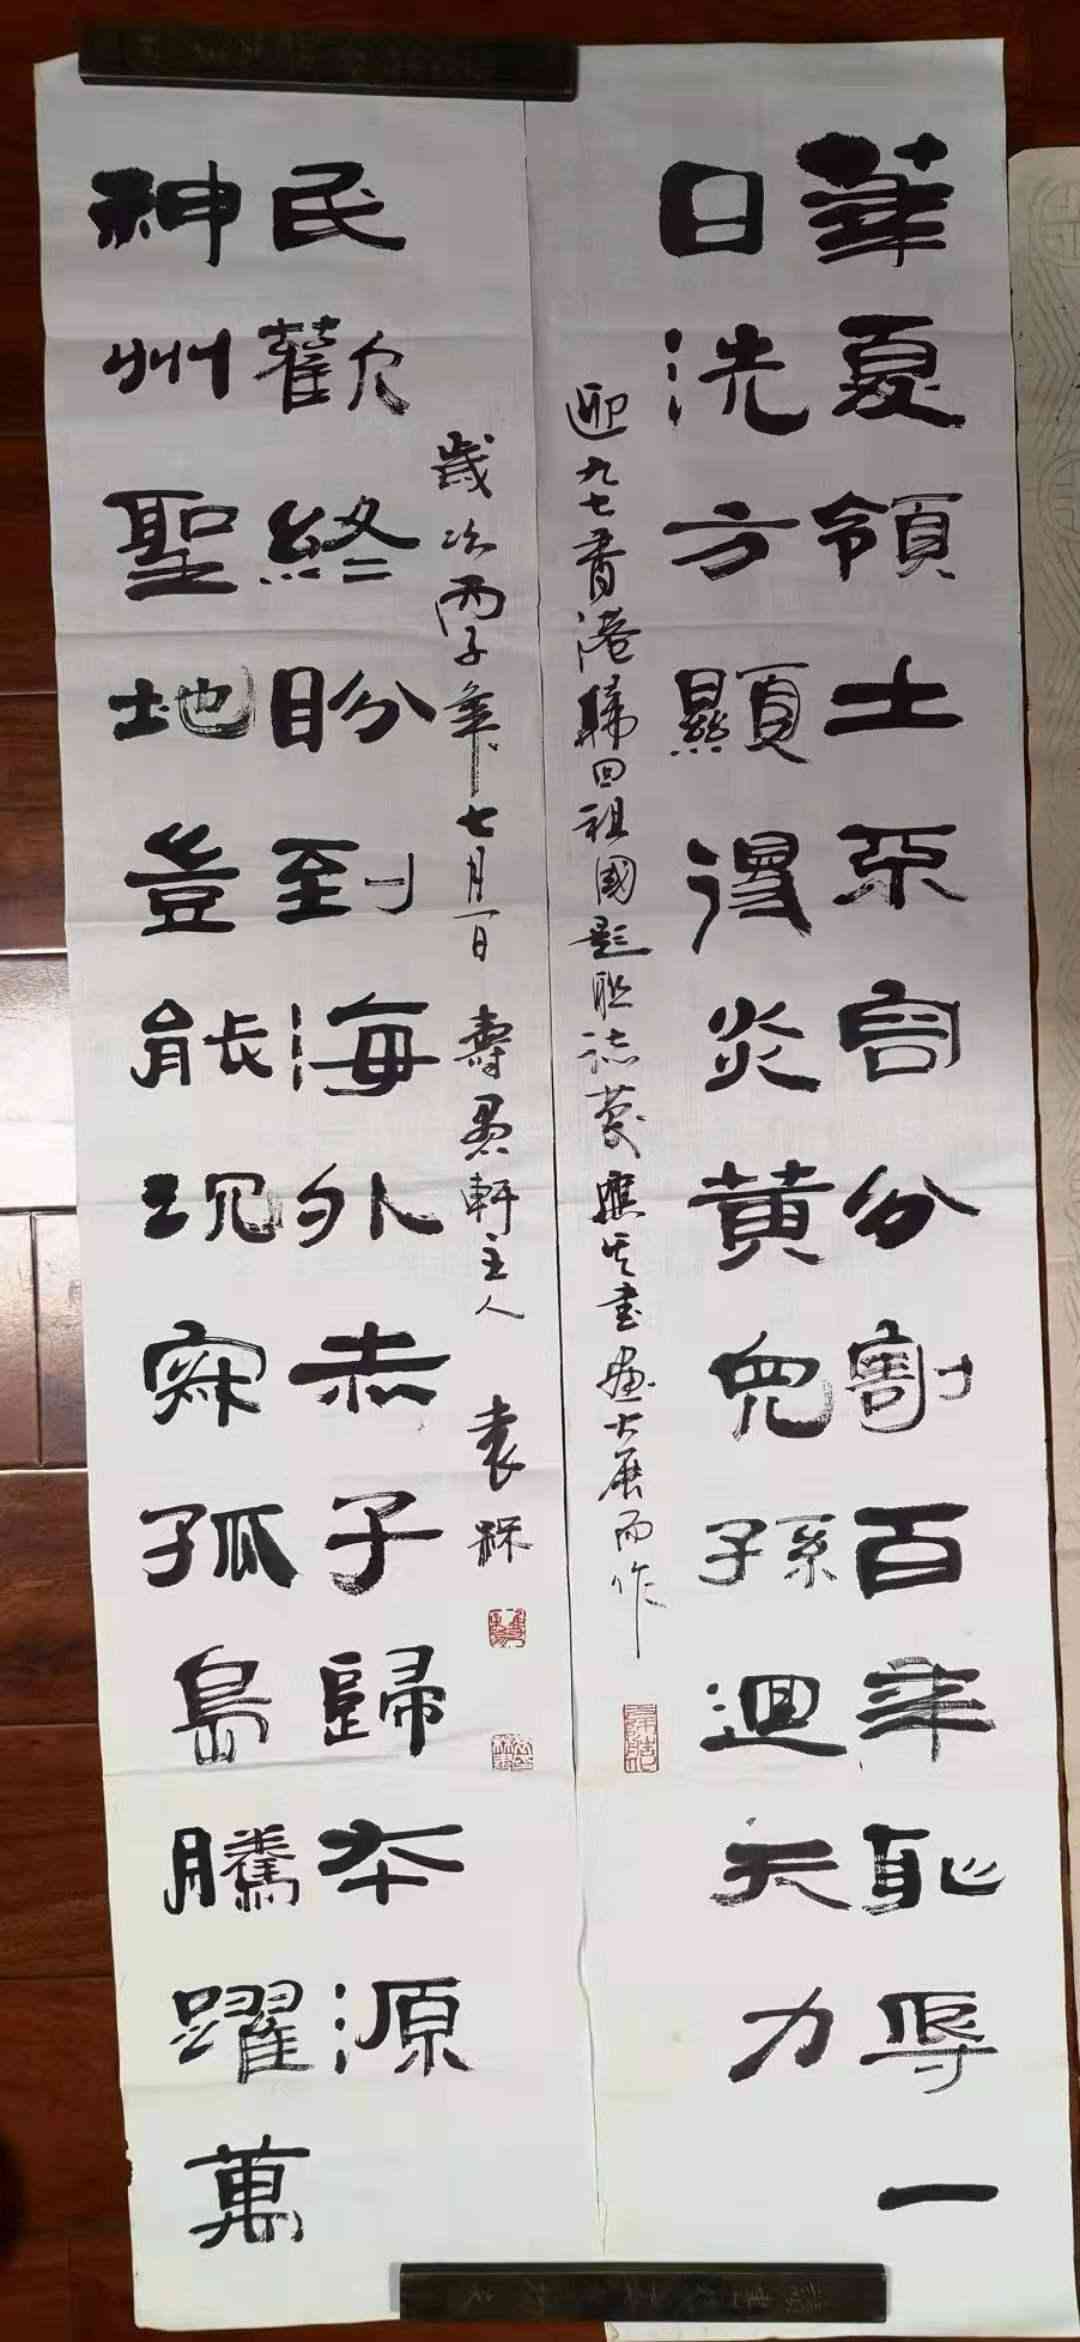 華夏領土不容分割百年恥辱一
日洗方顯得炎黃兒孫迴天力
迎九七香港歸回祖國題聯誌慶應其書畫大展而作
神州聖地豈能沉寂孤島騰躍萬
民歡終盼到海外赤子歸本源
歲次丙子年七月一日 壽 軒主人 袁